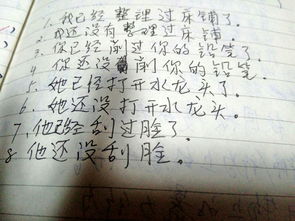 1. 我已经整理过床铺了.
2. 我还没有整理过床铺
3. 你已经削过你的铅笔了.
4 你还没削你的铅笔.
5. 她已经打开水龙头了.
6. 她还没打开水龙头.
7. 他已经刮过脸了
8. 他还没刮脸。